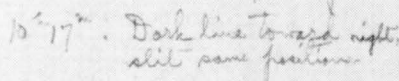 10ʰ 17ᵐ. Dark line toward right.
slit same position